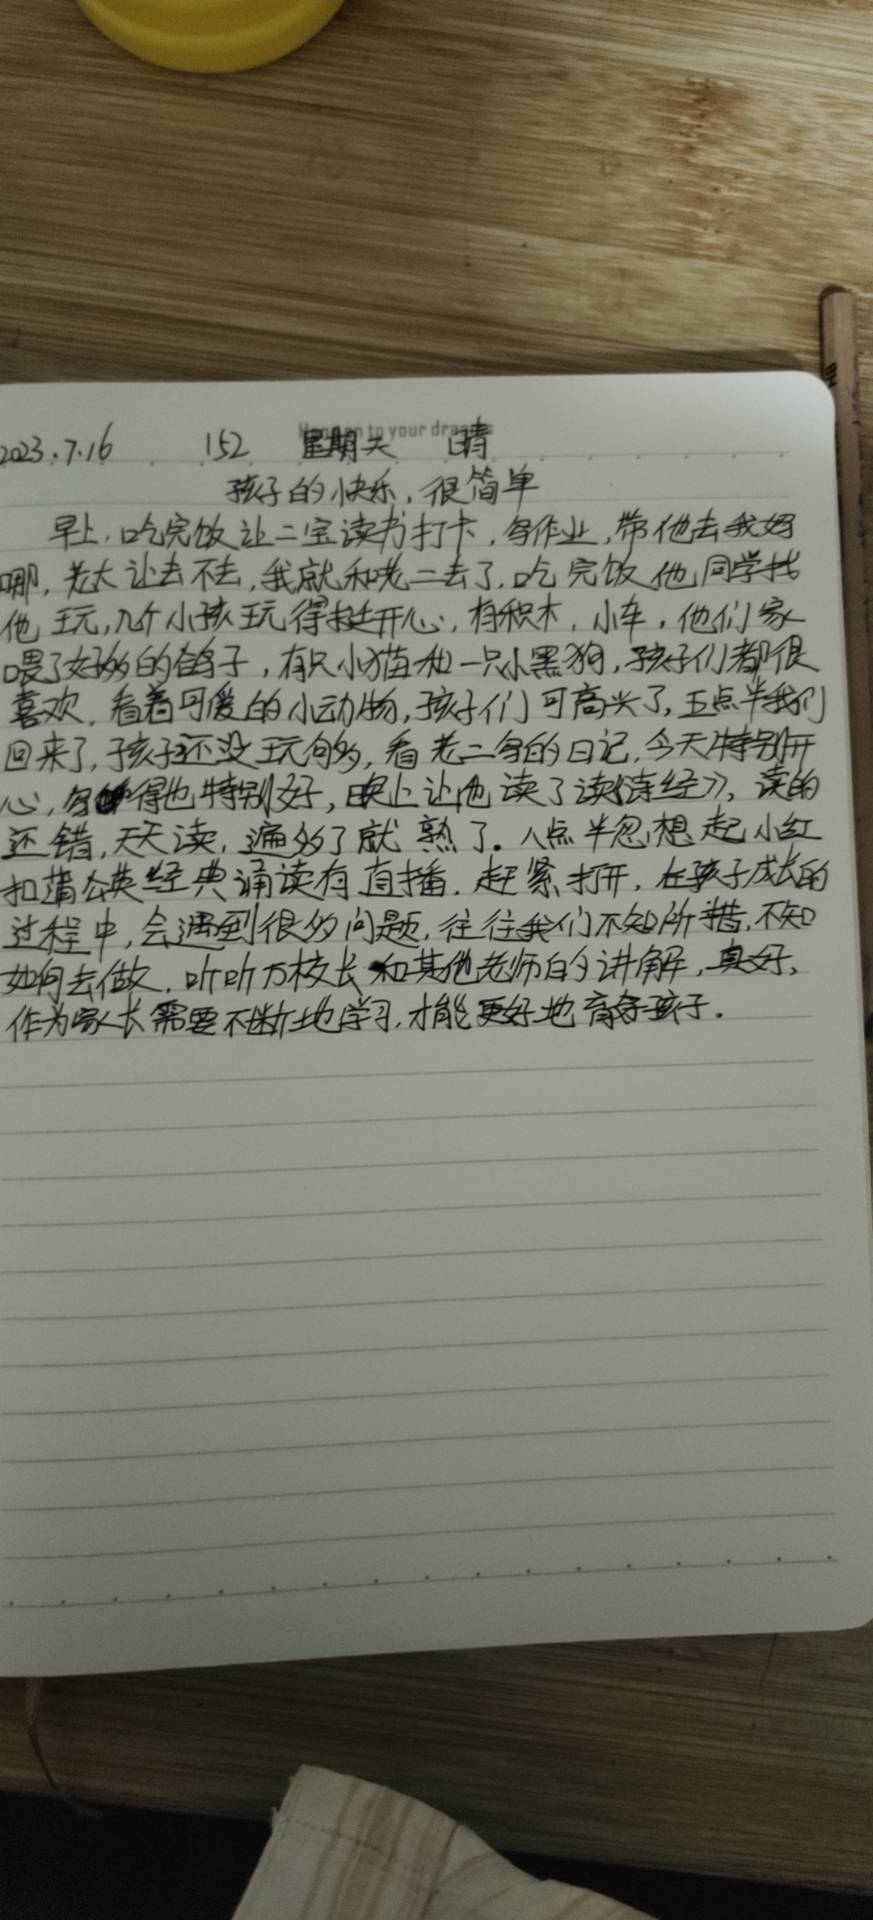 2023.7.16 152 星期天 晴
孩子的快乐,很简单
早上,吃完饭让二宝读书打卡,写作业,带他去我妈
哪,老大让去不去,我就和老二去了,吃完饭他同学找
他玩,几个小孩玩得挺开心,有积木,小车,他们家
喂了好多的鸽子,有只小猫和一只小黑狗,孩子们都很
喜欢,看着可爱的小动物,孩子们可高兴了,五点半我们
回来了,孩子还没玩够,看老二写的日记,今天特别开
心,写得也特别好,晚上让他读了读《诗经》,读的
还错,天天读,遍多了就熟了。八点半忽想起小红
扣蒲公英经典诵读有直播,赶紧打开,在孩子成长的
过程中,会遇到很多问题,往往我们不知所措,不知
如何去做,听听万校长和其他老师的讲解,真好,
作为家长需要不断地学习,才能更好地育孩子.